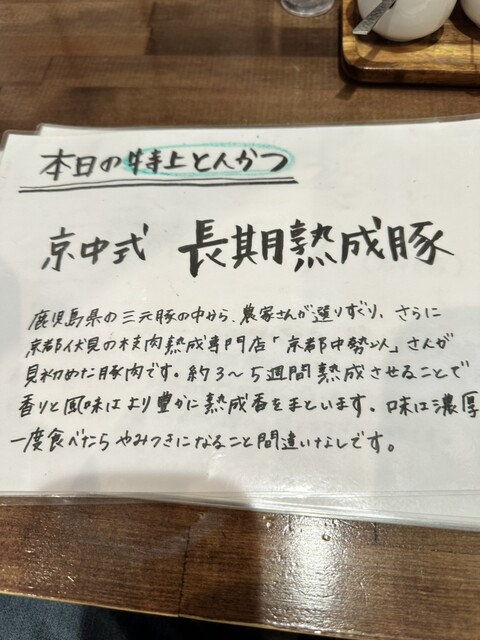 本日の特上とんかつ
京中式 長期熟成豚
鹿児島県の三元豚の中から、農家さんが選りすぐり、さらに
京都伏見の枝肉熟成専門店「京都中勢以」さんが
見初めた豚肉です。約3～5週間熟成させることで
香りと風味はより豊かに熟成香をまといます。味は濃厚
一度食べたらやみつきになること間違いなしです。